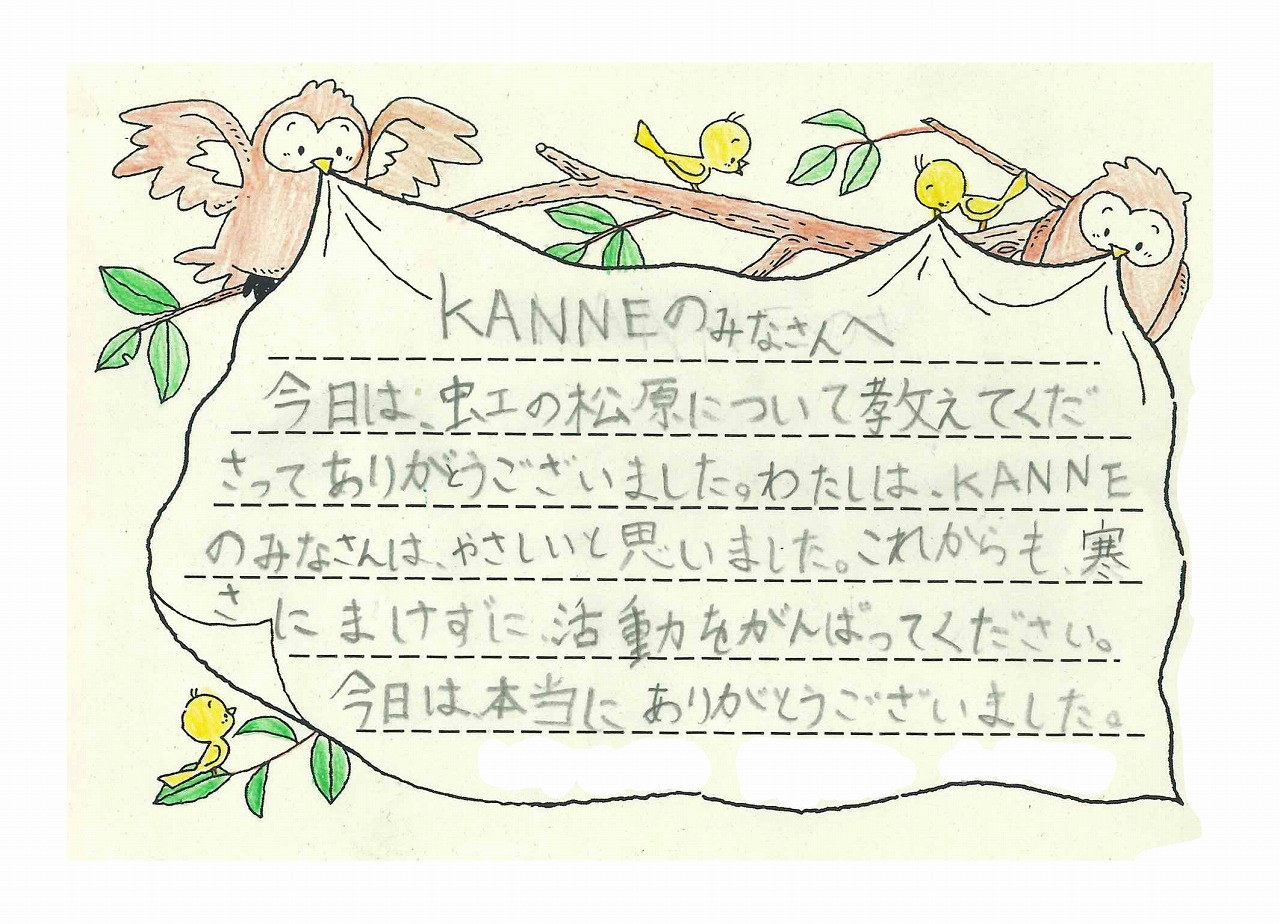 KANNEのみなさんへ
今日は、虹の松原について教えてくだ
さってありがとうございました。わたしは、KANNE
のみなさんは、やさしいと思いました。これからも、寒
さにまけずに、活動をがんばってください。
今日は、本当にありがとうございました。